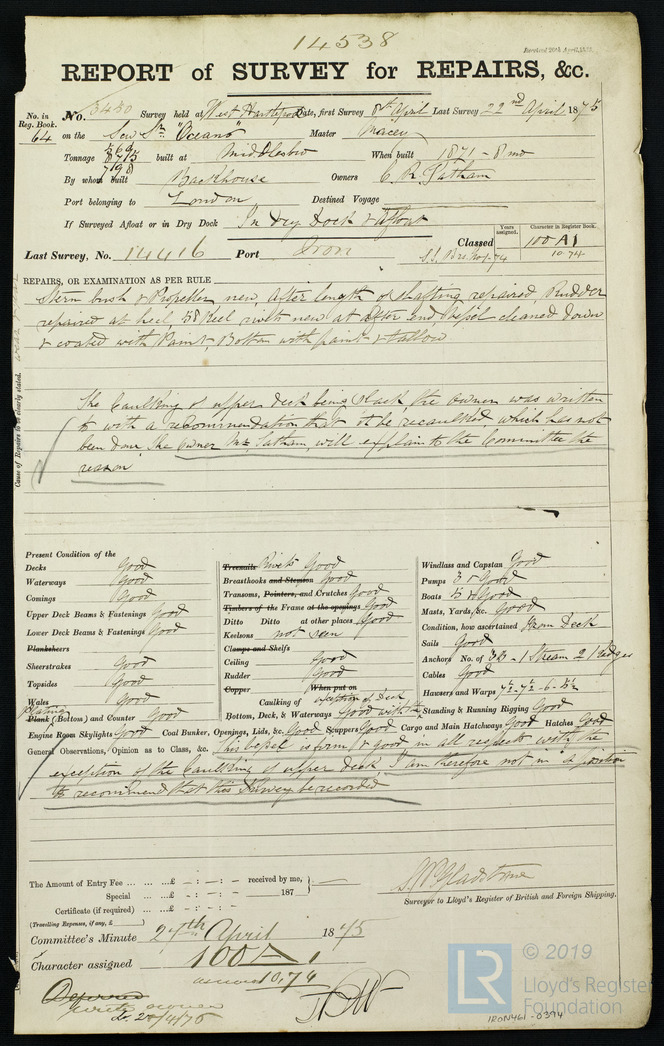 14538
REPORT of SURVEY for REPAIRS, &c.
No. in Reg. Book. No. 3430 Survey held at West Hartlepool Date, first Survey 8th April Last Survey 22nd April 1875
64 on the Scw Sr. "Oceano" Master Macey
Tonnage 715 built at Middlesbro When built 1871 - 8 mo
By whom built Backhouse Owners C. R. Tatham
Port belonging to London Destined Voyage
If Surveyed Afloat or in Dry Dock In Dry Dock & Afloat
Last Survey, No. 14416 Port Iron Classed Years assigned. Character in Register Book. 100 A1 10.74
REPAIRS, OR EXAMINATION AS PER RULE
Stern bush & Propeller new, After length of shafting repaired, Rudder
repaired at heel, 58 keel rivets new at after end, Vessel cleaned down
& coated with Paint, Bottom with paint & tallow
Cause of Repairs to be clearly stated.
The Caulking of upper deck being slack, the owner was written
to with a recommendation that it be recaulked, which has not
been done. The owner Mr. Tatham, will explain to the Committee the
reason
Present Condition of the
Decks Good
Waterways Good
Comings Good
Upper Deck Beams & Fastenings Good
Lower Deck Beams & Fastenings Good
Planksheers
Sheerstrakes Good
Topsides Good
Wales Good
plating
Plank (Bottom) and Counter Good
Engine Room Skylights Good
Treenails Rivets Good
Breasthooks and Stemson Good
Transoms, Pointers, and Crutches Good
Timbers of the Frame at the openings Good
Ditto Ditto at other places Good
Keelsons not seen
Clamps and Shelfs
Ceiling Good
Rudder Good
Copper When put on
Caulking of exception of Deck
Bottom, Deck, & Waterways Good with the
Coal Bunker, Openings, Lids, &c. Good Scuppers Good Cargo and Main Hatchways Good Hatches Good
Windlass and Capstan Good
Pumps 3 Good
Boats Good
Masts, Yards, &c. Good
Condition, how ascertained From Deck
Sails Good
Anchors No. of 3B - 1 Stream 2 Kedges
Cables Good
Hawsers and Warps
Standing & Running Rigging Good
General Observations, Opinion as to Class, &c. This vessel is firm & good in all respects with the
exception of the Caulking of upper deck, I am therefore not in a position
to recommend that this Survey be recorded
The Amount of Entry Fee ... ... ...£ - : - : - received by me,
Special ... ...£ - : - : - 187
Certificate (if required) ... ...£ - : - : -
(Travelling Expenses, if any, £ )
Committee's Minute 27th April 1875
Character assigned 100 A1
Surveyor to Lloyd's Register of British and Foreign Shipping.
Deferred
write owner
LR
© 2019
Lloyd's Register
Foundation
IRON461-0394